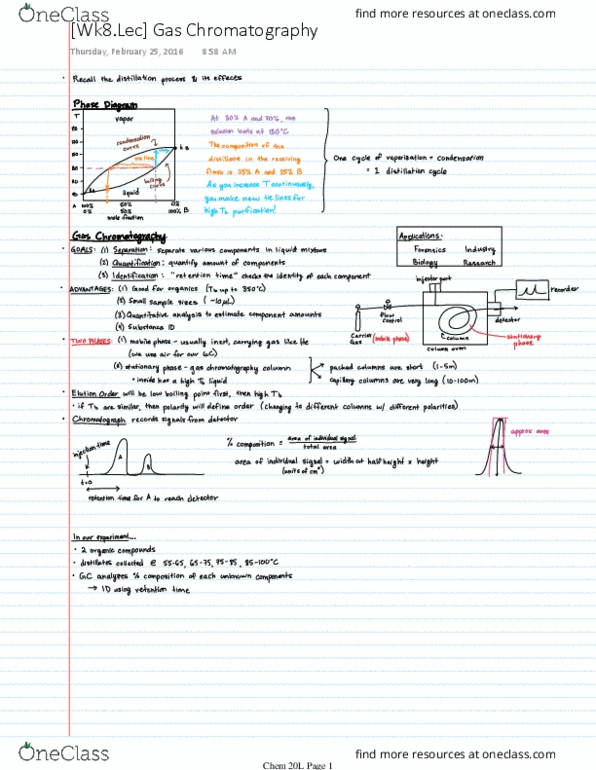 OneClass
find more resources at oneclass.com
[Wk8.Lec] Gas Chromatography
Thursday, February 25, 2016 8:58 AM
• Recall the distillation process & its effects
Phase Diagram
T
vapor
condensation curve
tie line
boiling curve
liquid
A 100% 50% 0%
0% 50% 100% B
mole fraction
At 30% A and 70%, the
solution boils at 130°C
The composition of the
distillate in the receiving
flask is 75% A and 25% B
As you increase T continuously,
you make new tie lines for
high Tb purification!
One cycle of vaporization + condensation
= 1 distillation cycle
Gas Chromatography
Applications:
Forensics Industry
Biology Research
• GOALS: (1) Separation: separate various components in liquid mixture
(2) Quantification: quantify amount of components
(3) Identification: "retention time" checks the identity of each component
• ADVANTAGES: (1) Good for organics (Tb up to 350°C)
(2) Small sample sizes (~10µL)
(3) Quantitative analysis to estimate component amounts
(4) Substance ID
injector port
recorder
flow control
detector
Carrier Gas (mobile phase)
column
stationary phase
column oven
• TWO PHASES: (1) mobile phase - usually inert, carrying gas like He
(we use air for our GC)
(2) stationary phase - gas chromatography column
• inside has a high Tb liquid
packed columns are short (1-5m)
capillary columns are very long (10-100m)
• Elution Order will be low boiling point first, then high Tb
• if Tb are similar, then polarity will define order (changing to different columns w/ different polarities)
• Chromatograph records signals from detector
injection time
A
B
t=0
retention time for A to reach detector
% composition = area of individual signal / total area
area of individual signal = width at half height x height
(units of cm²)
approx area
In our experiment...
• 2 organic compounds
• distillates collected @ 55-65, 65-75, 75-85, 85-100°C
• GC analyzes % composition of each unknown components
→ ID using retention time
OneClass
find more resources at oneclass.com
Chem 20L Page 1